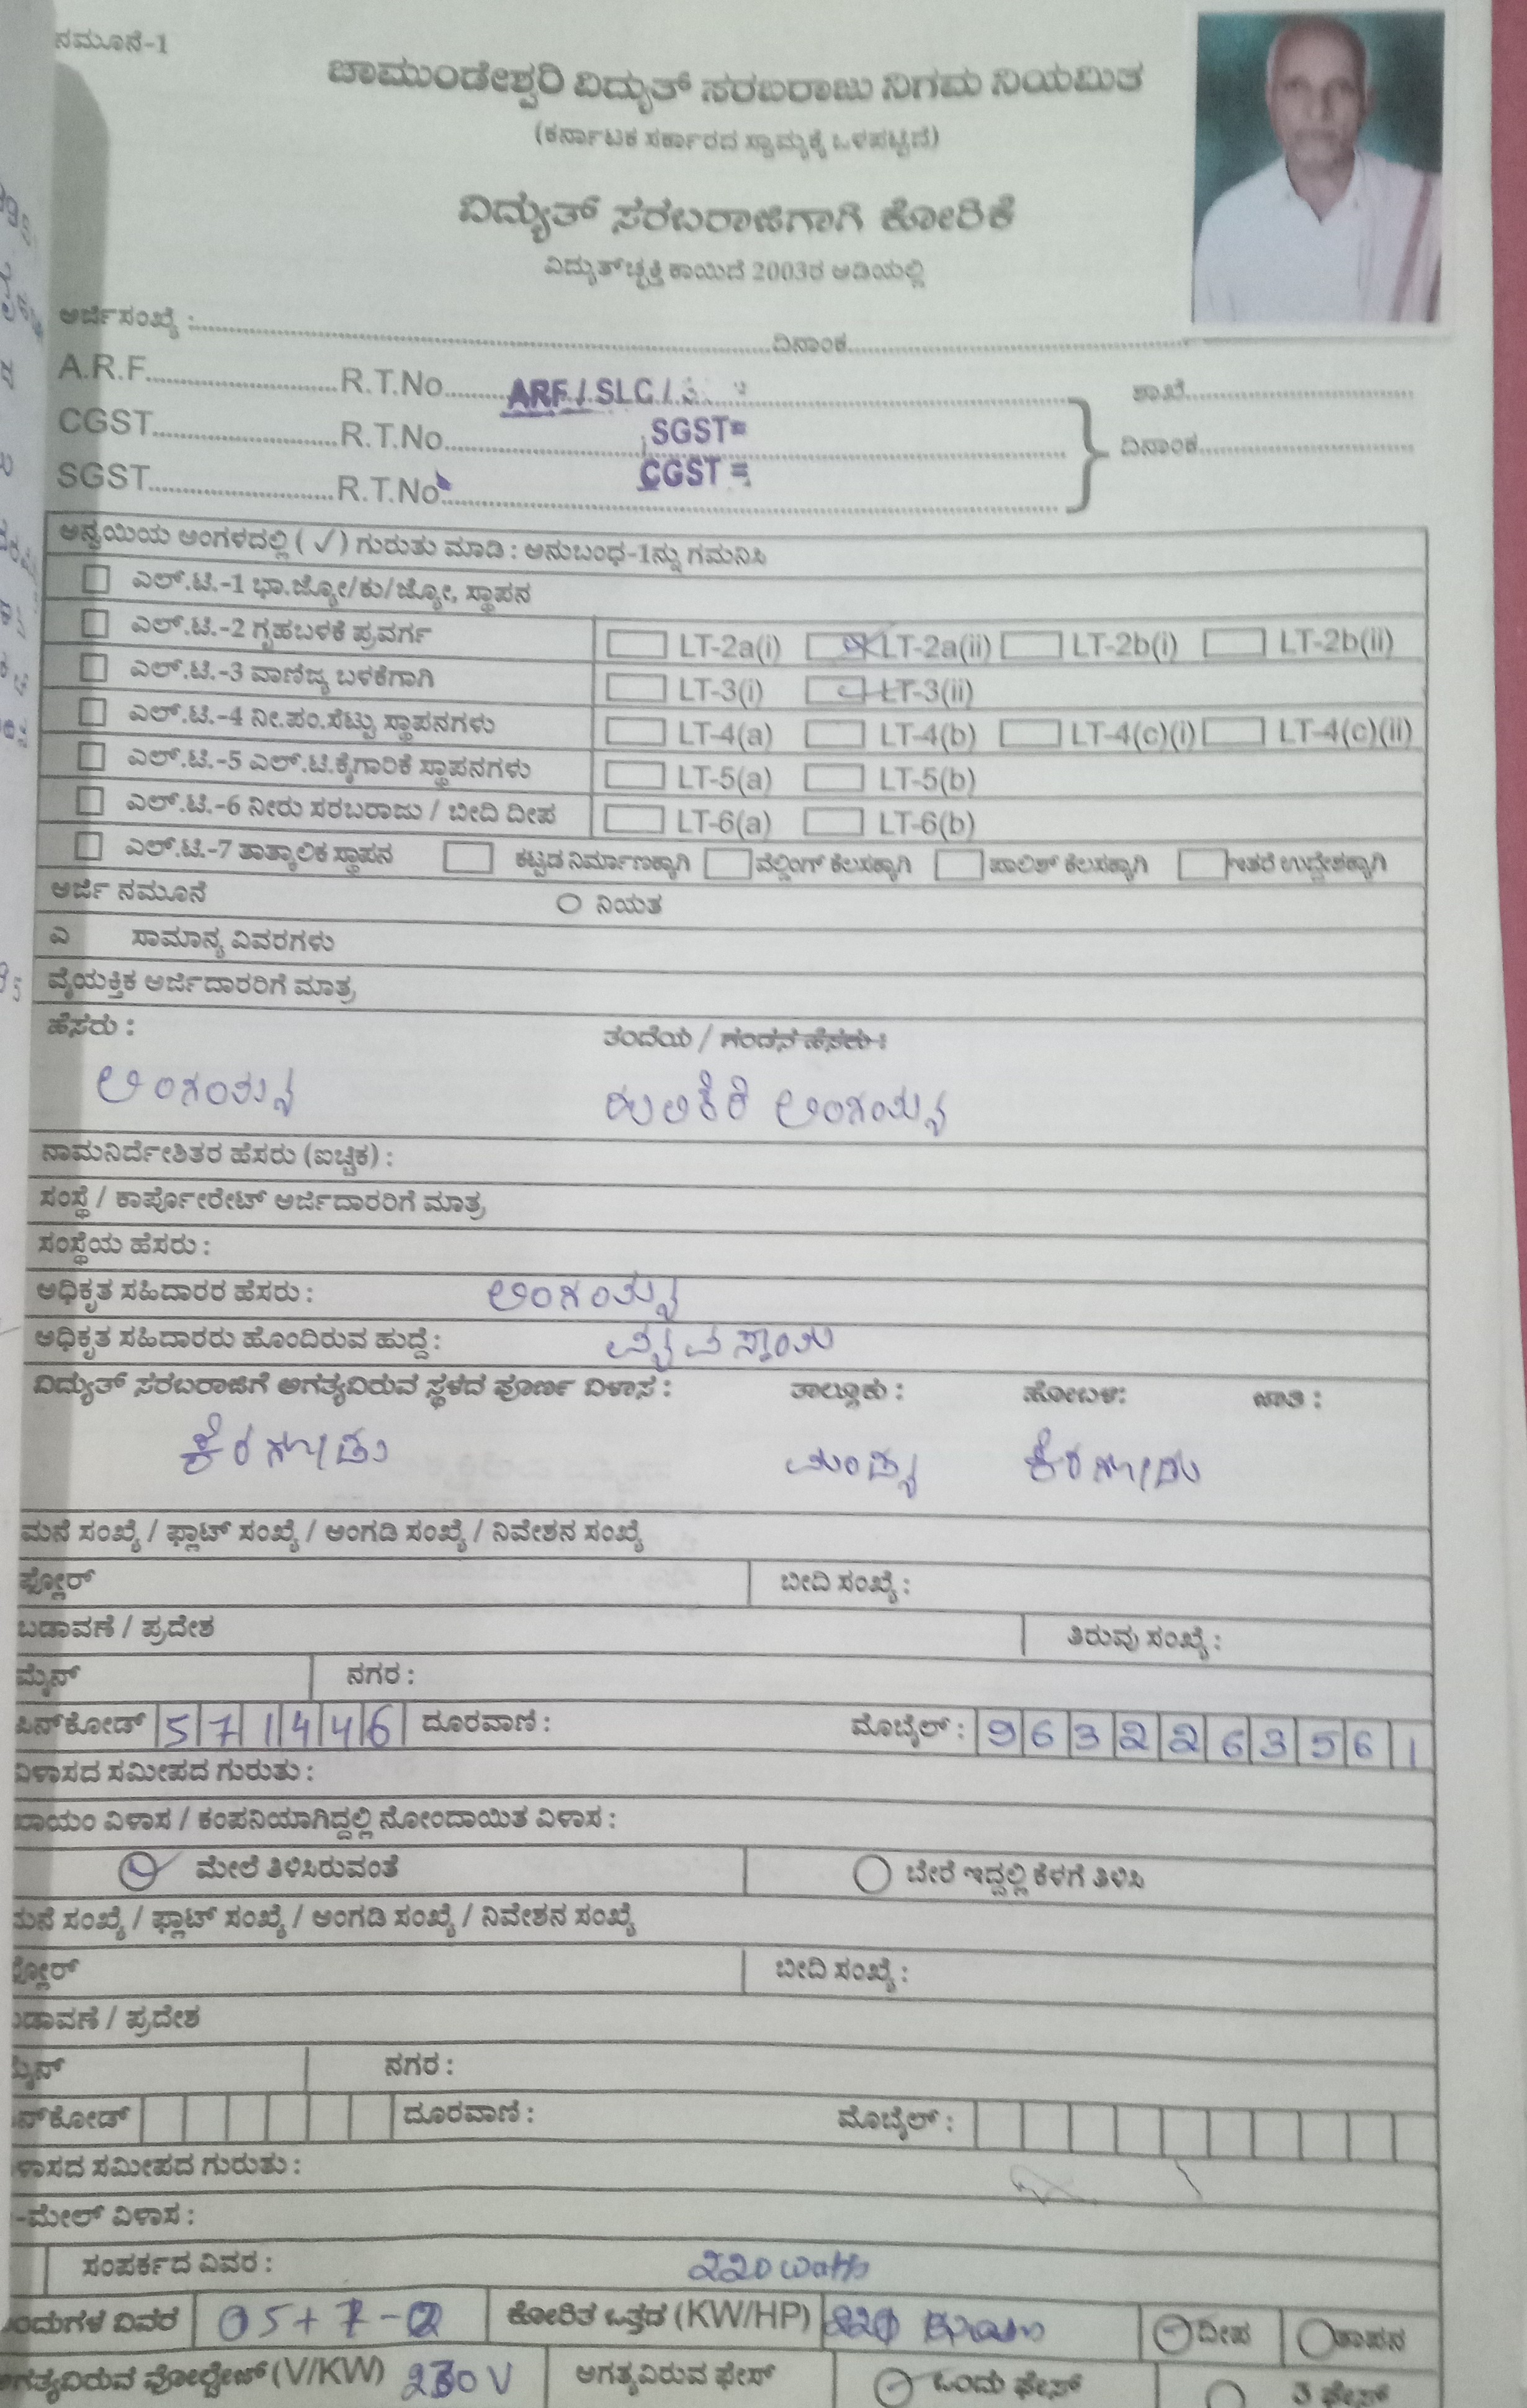 ನಮೂನೆ-1
ಚಾಮುಂಡೇಶ್ವರಿ ವಿದ್ಯುತ್ ಸರಬರಾಜು ನಿಗಮ ನಿಯಮಿತ
(ಕರ್ನಾಟಕ ಸರ್ಕಾರದ ಸ್ವಾಮ್ಯಕ್ಕೆ ಒಳಪಟ್ಟಿದೆ)
ವಿದ್ಯುತ್ ಸರಬರಾಜಿಗಾಗಿ ಕೋರಿಕೆ
ವಿದ್ಯುತ್‌ಚ್ಛಕ್ತಿ ಕಾಯಿದೆ 2003ರ ಅಡಿಯಲ್ಲಿ
ಅರ್ಜಿಸಂಖ್ಯೆ : ದಿನಾಂಕ
A.R.F. R.T.No. ARF / SLC / ಶಾಖೆ
CGST R.T.No. SGST= ದಿನಾಂಕ
SGST R.T.No CGST =
ಅನ್ವಯಿಯ ಅಂಗಳದಲ್ಲಿ ( ✓ ) ಗುರುತು ಮಾಡಿ : ಅನುಬಂಧ-1ನ್ನು ಗಮನಿಸಿ
ಎಲ್.ಟಿ.-1 ಭಾ.ಜ್ಯೋ/ಕು/ಜ್ಯೋ, ಸ್ಥಾಪನ
ಎಲ್.ಟಿ.-2 ಗೃಹಬಳಕೆ ಪ್ರವರ್ಗ LT-2a(i) LT-2a(ii) LT-2b(i) LT-2b(ii)
ಎಲ್.ಟಿ.-3 ವಾಣಿಜ್ಯ ಬಳಕೆಗಾಗಿ LT-3(i) LT-3(ii)
ಎಲ್.ಟಿ.-4 ನೀ.ಪಂ.ಸೆಟ್ಟು ಸ್ಥಾಪನಗಳು LT-4(a) LT-4(b) LT-4(c)(i) LT-4(c)(ii)
ಎಲ್.ಟಿ.-5 ಎಲ್.ಟಿ.ಕೈಗಾರಿಕೆ ಸ್ಥಾಪನಗಳು LT-5(a) LT-5(b)
ಎಲ್.ಟಿ.-6 ನೀರು ಸರಬರಾಜು / ಬೀದಿ ದೀಪ LT-6(a) LT-6(b)
ಎಲ್.ಟಿ.-7 ತಾತ್ಕಾಲಿಕ ಸ್ಥಾಪನ ಕಟ್ಟಡ ನಿರ್ಮಾಣಕ್ಕಾಗಿ ವೆಲ್ಡಿಂಗ್ ಕೆಲಸಕ್ಕಾಗಿ ಪಾಲಿಶ್ ಕೆಲಸಕ್ಕಾಗಿ ಇತರೆ ಉದ್ದೇಶಕ್ಕಾಗಿ
ಅರ್ಜಿ ನಮೂನೆ ನಿಯತ
ಎ ಸಾಮಾನ್ಯ ವಿವರಗಳು
ವೈಯಕ್ತಿಕ ಅರ್ಜಿದಾರರಿಗೆ ಮಾತ್ರ
ಹೆಸರು : ತಂದೆಯ / ಗಂಡನ ಹೆಸರು :
ಲಿಂಗಯ್ಯ ಲಿಂಗಯ್ಯ
ನಾಮನಿರ್ದೇಶಿತರ ಹೆಸರು (ಐಚ್ಛಿಕ) :
ಸಂಸ್ಥೆ / ಕಾರ್ಪೋರೇಟ್ ಅರ್ಜಿದಾರರಿಗೆ ಮಾತ್ರ
ಸಂಸ್ಥೆಯ ಹೆಸರು :
ಅಧಿಕೃತ ಸಹಿದಾರರ ಹೆಸರು : ಲಿಂಗಯ್ಯ
ಅಧಿಕೃತ ಸಹಿದಾರರು ಹೊಂದಿರುವ ಹುದ್ದೆ : ವ್ಯವಸಾಯ
ವಿದ್ಯುತ್ ಸರಬರಾಜಿಗೆ ಅಗತ್ಯವಿರುವ ಸ್ಥಳದ ಪೂರ್ಣ ವಿಳಾಸ : ತಾಲ್ಲೂಕು : ಹೋಬಳಿ: ಜಾತಿ :
ಕೆರಗೋಡು ಮಂಡ್ಯ ಕೆರಗೋಡು
ಮನೆ ಸಂಖ್ಯೆ / ಫ್ಲಾಟ್ ಸಂಖ್ಯೆ / ಅಂಗಡಿ ಸಂಖ್ಯೆ / ನಿವೇಶನ ಸಂಖ್ಯೆ
ಫ್ಲೋರ್ ಬೀದಿ ಸಂಖ್ಯೆ :
ಬಡಾವಣೆ / ಪ್ರದೇಶ ತಿರುವು ಸಂಖ್ಯೆ :
ಮೈನ್ ನಗರ :
ಪಿನ್‌ಕೋಡ್ 571446 ದೂರವಾಣಿ : ಮೊಬೈಲ್ : 9632263561
ವಿಳಾಸದ ಸಮೀಪದ ಗುರುತು :
ಖಾಯಂ ವಿಳಾಸ / ಕಂಪನಿಯಾಗಿದ್ದಲ್ಲಿ ನೋಂದಾಯಿತ ವಿಳಾಸ :
ಮೇಲೆ ತಿಳಿಸಿರುವಂತೆ ಬೇರೆ ಇದ್ದಲ್ಲಿ ಕೆಳಗೆ ತಿಳಿಸಿ
ಮನೆ ಸಂಖ್ಯೆ / ಫ್ಲಾಟ್ ಸಂಖ್ಯೆ / ಅಂಗಡಿ ಸಂಖ್ಯೆ / ನಿವೇಶನ ಸಂಖ್ಯೆ
ಫ್ಲೋರ್ ಬೀದಿ ಸಂಖ್ಯೆ :
ಬಡಾವಣೆ / ಪ್ರದೇಶ
ಮೈನ್ ನಗರ :
ಪಿನ್‌ಕೋಡ್ ದೂರವಾಣಿ : ಮೊಬೈಲ್ :
ವಿಳಾಸದ ಸಮೀಪದ ಗುರುತು :
-ಮೇಲ್ ವಿಳಾಸ :
ಸಂಪರ್ಕದ ವಿವರ : 220 watts
ವಿವರ 05+7- ಕೋರಿತ ಒತ್ತಡ (KW/HP) ದೀಪ ತಾಪನ
ಅಗತ್ಯವಿರುವ ವೋಲ್ಟೇಜ್ (V/KW) 230 V ಅಗತ್ಯವಿರುವ ಫೇಸ್ ಒಂದು ಫೇಸ್ 3 ಫೇಸ್